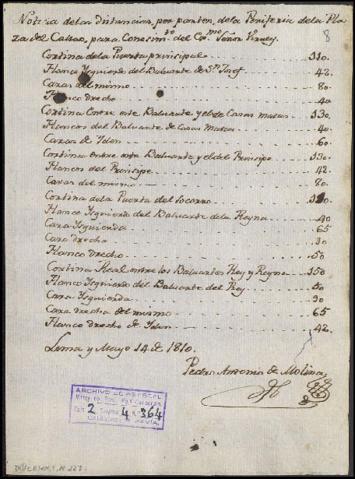 Noticia delas distancias, por partes, dela Periferia dela Pla-
za del Callao, para Conocim.to del Ex.mo Señor Virrey. 8
Cortina dela Puerta principal 310.
Flanco Yzquierdo del Baluarte de Sn Josef 42.
Caras del mismo 80.
Flanco drecho 40.
Cortina Entre este Baluarte y el de Casas matas 330.
Flancos del Baluarte de Casas Matas 40.
Caras de Ydem 60.
Cortina entre este Baluarte y el del Principe 330.
Flancos del Principe 42.
Caras del mismo 80.
Cortina dela Puerta del Socorro
Flanco Yzquierdo del Baluarte dela Reyna 40
Cara Yzquierda 65
Cara drecha 90
Flanco drecho 50
Cortina Real entre los Baluartes Rey y Reyna 350
Flanco Yzquierdo del Baluarte del Rey 50
Cara Yzquierda 90
Cara drecha del mismo 65
Flanco drecho de Ydem 42.
Lima y Mayo 14. de 1810.
Pedro Antonio de Molina
ARCHIVO
2 4 364